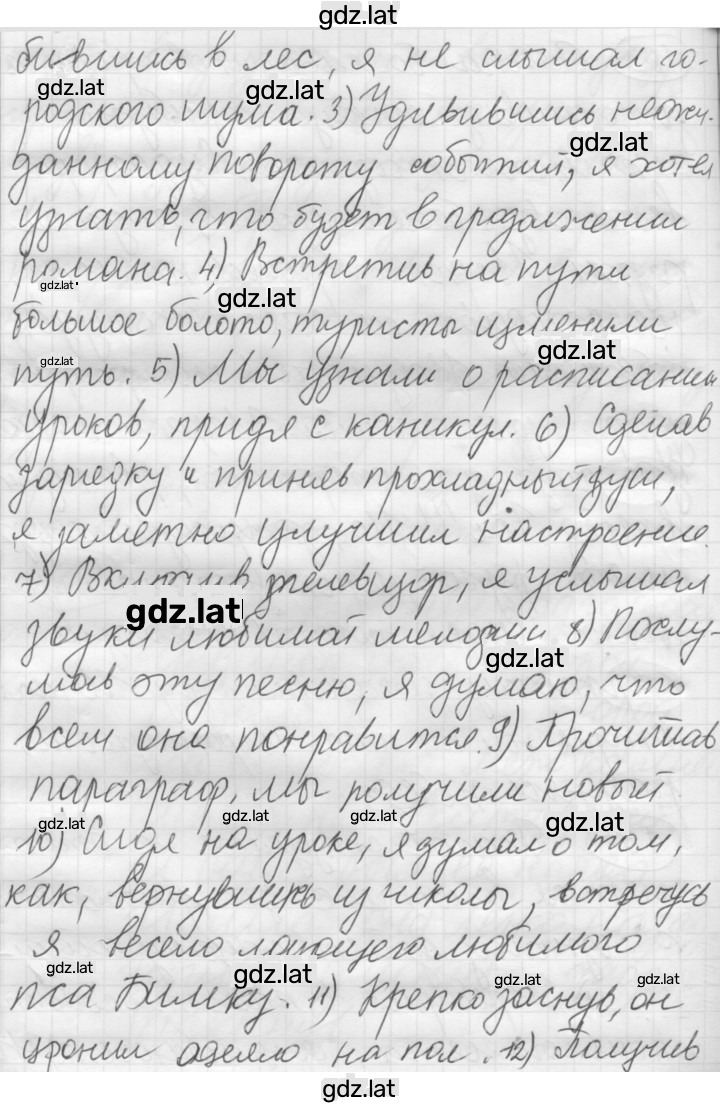 gdz.lat
бившись в лес, я не слышал го-
родского шума. 3) Удивившись неожи-
данному повороту событий, я хотел
узнать, что будет в продолжении
романа. 4) Встретив на пути
большое болото, туристы изменили
путь. 5) Мы узнали о расписании
уроков, придя с каникул. 6) Сделав
зарядку и приняв прохладный душ,
я заметно улучшил настроение.
7) Включив телевизор, я услышал
звуки любимой мелодии 8) Послу-
шав эту песню, я думаю, что
всем она понравится. 9) Прочитав
параграф, мы получили новый
10) Сидя на уроке, я думал о том,
как, вернувшись из школы, встречусь
я весело лающего любимого
пса Бимку. 11) Крепко заснув, он
уронил одеяло на пол. 12) Получив
gdz.lat